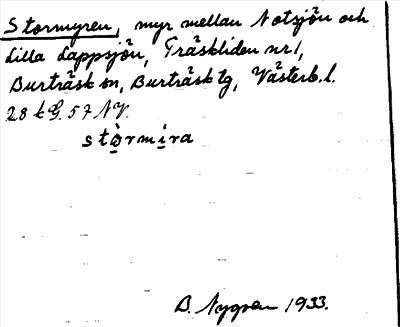 Stormyren, myr mellan Notsjön och
Lilla Lappsjön, Träskliden nr 1,
Burträsk sn, Burträsk tg, Västerb. l.
28 k G. 57 NV.
stòrmira
B. Nygren 1933.